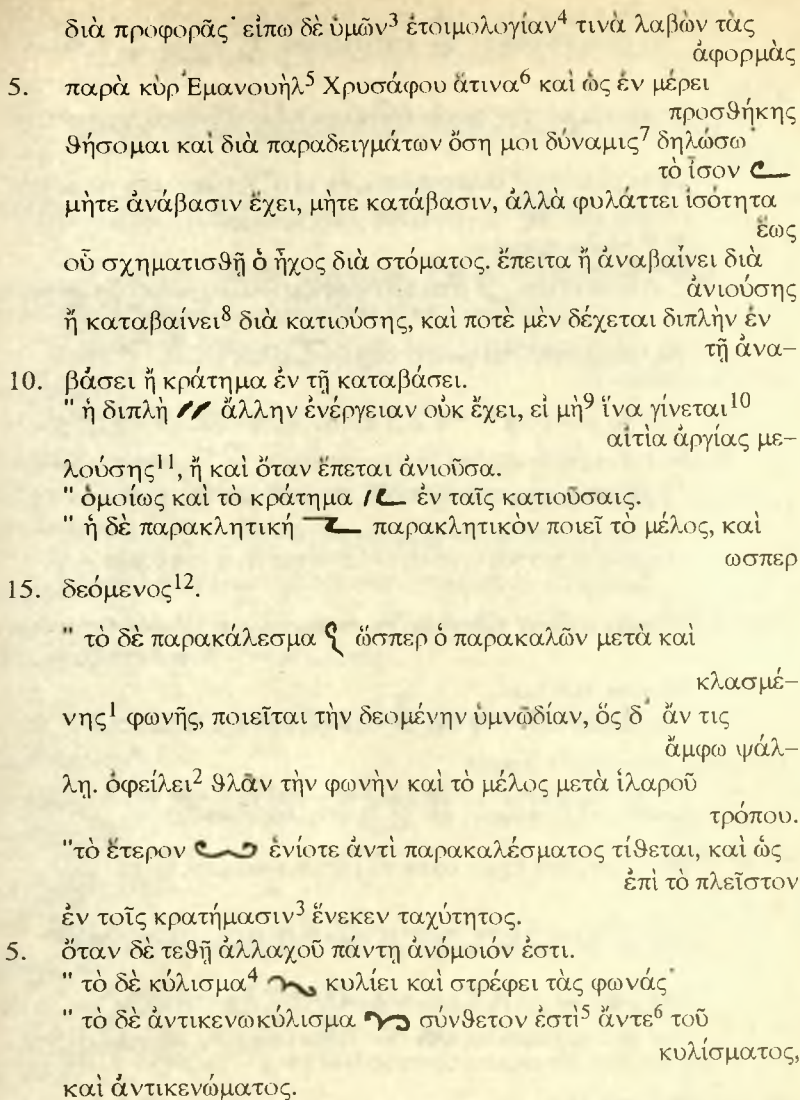 διὰ προφορᾶς· εἰπω δὲ ὑμῶν3 ἐτοιμολογίαν4 τινὰ λαβὼν τὰς
ἀφορμὰς
5. παρὰ κὺρ Ἐμανουὴλ5 Χρυσάφου ἅτινα6 καὶ ὡς ἐν μέρει
προσθήκης
θήσομαι καὶ διὰ παραδειγμάτων ὅση μοι δύναμις7 δηλώσω·
τὸ ἴσον
μὴτε ἀνάβασιν ἔχει, μὴτε κατάβασιν, ἀλλὰ φυλάττει ἰσότητα
ἕως
οὗ σχηματισθῇ ὁ ἦχος διὰ στόματος. ἔπειτα ἢ ἀναβαίνει διὰ
ἀνιούσης
ἢ καταβαίνει8 διὰ κατιούσης, καὶ ποτὲ μὲν δέχεται διπλὴν ἐν
τῇ ἀνα-
10. βάσει ἢ κράτημα ἐν τῇ καταβάσει.
" ἡ διπλὴ ἄλλην ἐνέργειαν οὐκ ἔχει, εἰ μὴ9 ἵνα γίνεται10
αἰτία ἀργίας με-
λούσης11, ἢ καὶ ὅταν ἕπεται ἀνιοῦσα.
" ὁμοίως καὶ τὸ κράτημα ἐν ταῖς κατιοῦσαις.
" ἡ δὲ παρακλητικὴ παρακλητικὸν ποιεῖ τὸ μέλος, καὶ
ωσπερ
15. δεόμενος12.
" τὸ δὲ παρακάλεσμα ὥσπερ ὁ παρακαλῶν μετὰ καὶ
κλασμέ-
νης1 φωνῆς, ποιεῖται τὴν δεομένην ὑμνωδίαν, ὅς δ᾽ ἄν τις
ἄμφω ψάλ-
λῃ. ὀφείλει2 θλᾶν τὴν φωνὴν καὶ τὸ μέλος μετὰ ἱλαροῦ
τρόπου.
"τὸ ἕτερον ἐνίοτε ἀντὶ παρακαλέσματος τίθεται, καὶ ὡς
ἐπὶ τὸ πλεῖστον
ἐν τοῖς κρατήμασιν3 ἕνεκεν ταχύτητος.
5. ὅταν δὲ τεθῇ ἀλλαχοῦ πάντῃ ἀνόμοιόν ἐστι.
" τὸ δὲ κύλισμα4 κυλίει καὶ στρέφει τὰς φωνάς·
" τὸ δὲ ἀντικενωκύλισμα σύνθετον ἐστὶ5 ἄντε6 τοῦ
κυλίσματος,
καὶ ἀντικενώματος.